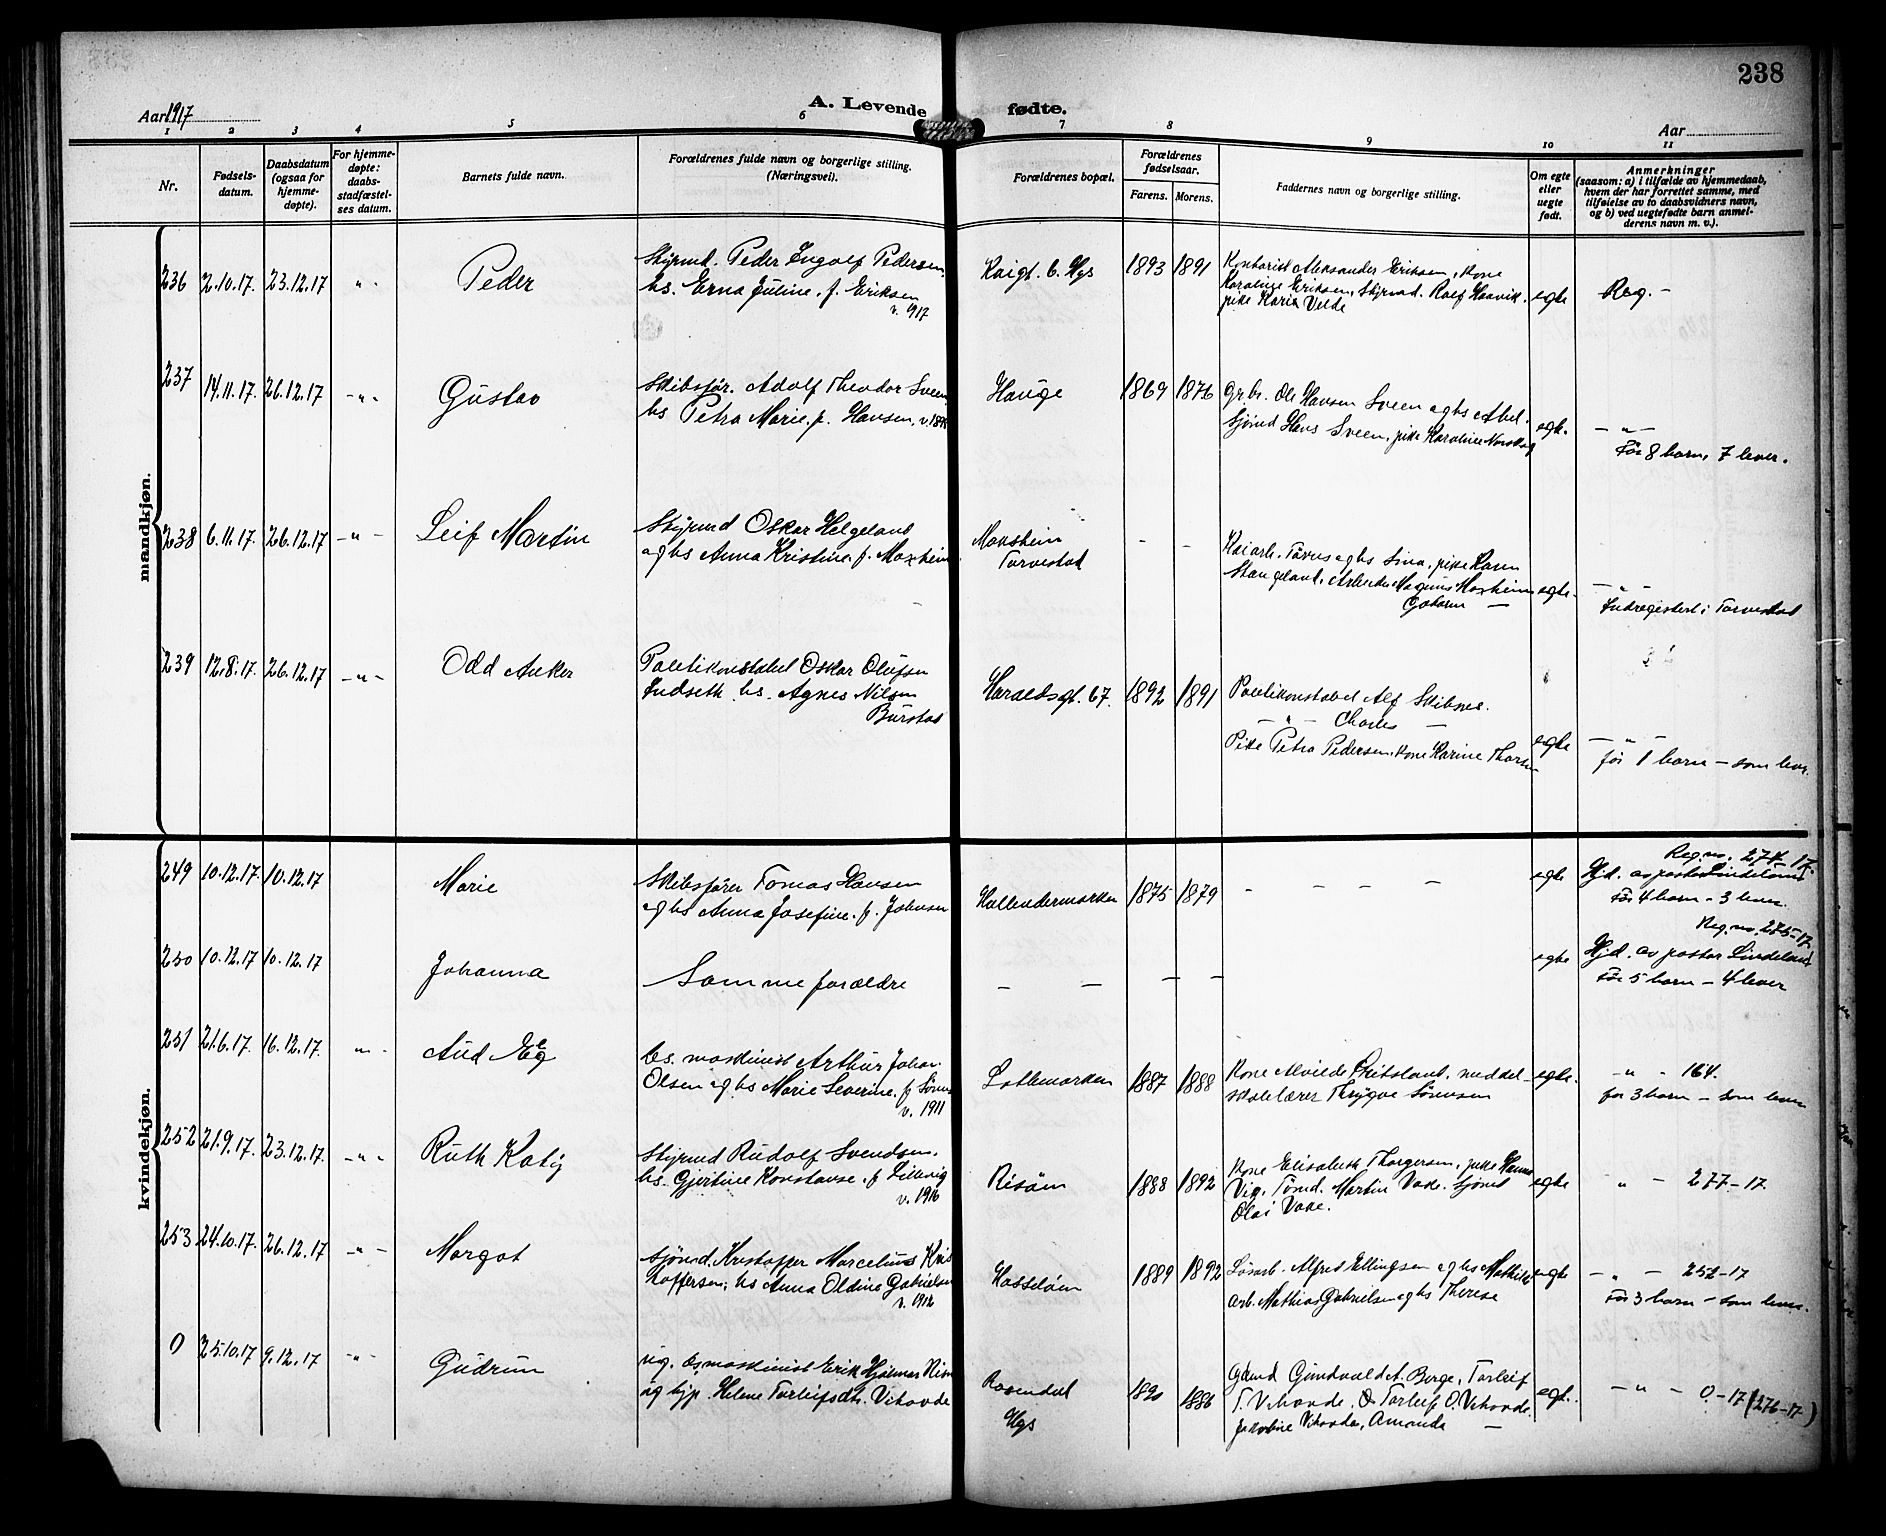 238
Aar 1917
A. Levende fødte.
Aar
1 2 3 4 5 6 7 8 9 10 11
Nr.
Fødsels-
datum.
Daabsdatum
(ogsaa for
hjemme-
døpte).
For hjemme-
døpte:
daabs-
stadfæstel-
ses datum.
Barnets fulde navn.
Forældrenes fulde navn og borgerlige stilling.
(Næringsvei).
Forældrenes bopæl.
Forældrenes
fødselsaar.
Farens. Morens.
Faddernes navn og borgerlige stilling.
Om egte
eller
uegte
født.
Anmerkninger
(saasom: a) i tilfælde av hjemmedaab,
hvem der har forrettet samme, med
tilføielse av to daabsvidners navn,
og b) ved uegtefødte barn anmel-
derens navn m. v.).
mandkjøn.
236 2.10.17. 23.12.17 " -
Peder
Styrmd. Peder Ingolf Pedersen
hs. Erna Juline. f. Eriksen
v. 917
Kaigt. 6. Hgs
1893 1891
Kontorist Aleksander Eriksen, kone
Karoline Eriksen, Styrmd. Rolf Haavik.
pike Karia Velde
egte
Reg. -
237 14.11.17. 26.12.17 - " -
Gustav
Skibsfør. Adolf Theodor Sveen
hs Petra Marie. f. Hansen, v. 189
Hauge
1869 1876
Grbr. Ole Hansen Sveen og hs Abel.
Sjømd Hans Sveen, pike Karoline
egte.
- " -
Før 8 barn, 7 lever.
238 6.11.17. 26.12.17 - " -
Leif Martin
Styrmd Oskar Helgeland
og hs Anna Kristine. f. Moxheim
Moksheim
Torvestad
- -
Kaiarb. og hs Sina, pike Karen
Stangeland. Arbeider Magnus Moxheim
egte.
- " -
Indregistert i Torvestad
239 12.8.17. 26.12.17 - " -
Odd Anker
Politikonstabel Oskar Olufsen
Indseth hs. Agnes Nilsen
Burstad
Haraldsgt. 67.
1892 1891
Politikonstabel Alf Skibnes.
- " - Charles -
Pike Petra Pedersen, kone Karine Thorsen
egte
- " -
før 1 barn - som lever.
kvindekjøn.
249 10.12.17 10.12.17
Marie
Skibsfører Tomas Hansen
og hs Anna Josefine. f. Johnsen
Hollendermarken
1875 1879
- - - -
egte
Reg. no. 274-17.
Hjd. av pastor Lindeland
Før 4 barn - 3 lever.
250 10.12.17 10.12.17
Johanna
Samme forældre
- - - -
egte
Reg. no. 275-17
Hjd. av pastor Lindeland
Før 5 barn - 4 lever
251 21.6.17. 16.12.17. " -
Aud Eg
hs. maskinist Arthur Johan
Olsen og hs Marie Severine. f Sørens
v. 1911
Lothemarken
1887 1888
Kone Alvilde. middel-
skolelærer Thrygve Sørensen
egte.
- " - 164.
før 3 barn - som lever
252 21.9.17. 23.12.17. - " -
Ruth Katy
Styrmd Rudolf Svendsen.
hs. Gjertine Konstanse. f Lillevig
v. 1916
Risöen
1888 1892
Kone Elisabeth Thorgersen, pike Hanna
Vig, Tömd. Martin Vake. Sjömd
Olai Vake.
egte
" - 277-17
253 24.10.17. 26.12.17 - " -
Margot
Sjömd. Kristoffer Marcelius Kris
toffersen; hs Anna Oldine Gabrielsen
v. 1912
Hasselöen
1889 1892
Lösarb. Alfred Ellingsen og hs Mathilde
arb. Mathias Gabrielsen og hs Therese
egte
- " - 252-17
Før 3 barn - som lever.
0 25.10.17 9.12.17 - " -
Gudrun
maskinist Erik Hjalmar
og hjp. Helene Torleifsdtr. Vihovde
Rosendal
Hgs
1890 1886
Gbmd Gundvald A. Berge, Torleif
T. Vihovde, Torleif O. Vihovde.
Jakobine Vihovde, Amanda -
egte.
- " - 0-17 (276-17)